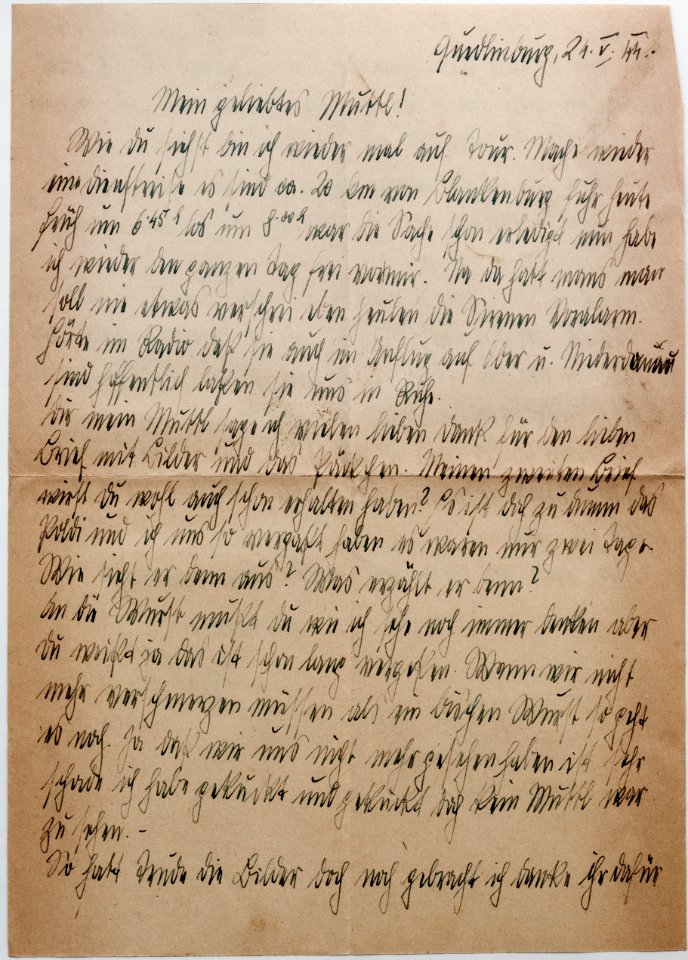 Quedlinburg, 21. V. 44.
Mein geliebtes Muttl!
Wie du siehst bin ich wieder mal auf Tour. Mache wieder
eine Dienstreise es sind ca. 20 km von Blankenburg fuhr heute
früh um 6 45 h los um 8 00 h war die Sache schon erledigt nun habe
ich wieder den ganzen Tag frei vor mir. Na da hatt mans man
soll nie etwas verschrei eben heulen die Sirenen Voralarm.
Hörte im Radio daß sie auch im Anflug auf Ober u. Niederdonau
sind hoffentlich laßen sie uns in Ruhe.
Dir mein Muttl sage ich vielen lieben Dank für den lieben
Brief mit Bilder und das Päckchen. Meinen zweiten Brief
wirst du wohl auch schon erhalten haben? Es ist doch zu dumm das
Poldi und ich uns so verpaßt haben es waren nur zwei Tage
Wie sieht er denn aus? Was erzählt er denn?
An die Wurst mußt du wie ich sehe noch immer denken aber
du weißt ja das ist schon lang vergeßen. Wenn wir nicht
mehr verschmerzen müssen als ein bischen Wurst so geht
es noch. Ja daß wir uns nicht mehr gesehen haben ist sehr
schade ich habe gekuckt und gekuckt doch kein Muttl war
zu sehen. -
So hatt Trude die Bilder doch noch gebracht ich danke ihr dafür